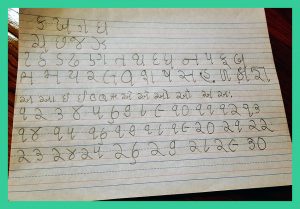 ક ખ ગ ઘ
ચ છ જ ઝ
ટ ઠ ડ ઢ ણ ત થ દ ધ ન પ ફ બ
ભ મ ય ર લ વ શ ષ સ હ ળ ક્ષ જ્ઞ
અ આ ઇ ઈ ઉ ઊ એ ઐ ઓ ઔ અં અઃ
૧ ૨ ૩ ૪ ૫ ૬ ૭ ૮ ૯ ૧૦ ૧૧ ૧૨ ૧૩
૧૪ ૧૫ ૧૬ ૧૭ ૧૮ ૧૯ ૨૦ ૨૧ ૨૨
૨૩ ૨૪ ૨૫ ૨૬ ૨૭ ૨૮ ૨૯ ૩૦